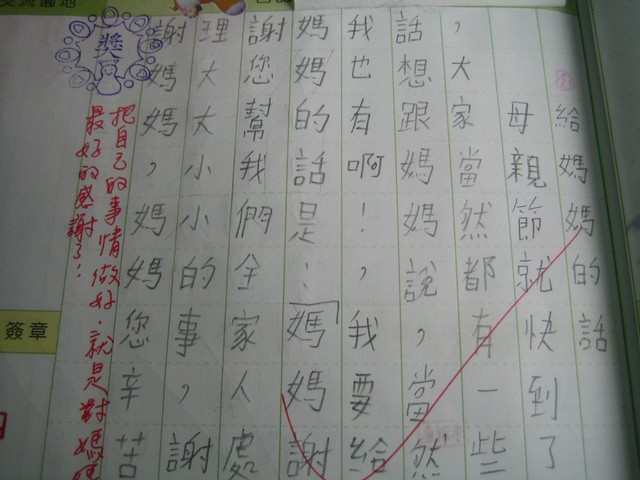 給媽媽的話
母親節就快到了
，大家當然都有一些
話想跟媽媽說，當然
我也有啊！，我要給
媽媽的話是：「媽媽謝
謝您幫我們全家人處
理大大小小的事，謝
謝媽媽，媽媽您辛苦
把自己的事情做好，就是對媽媽
最好的感謝了！
獎
簽章